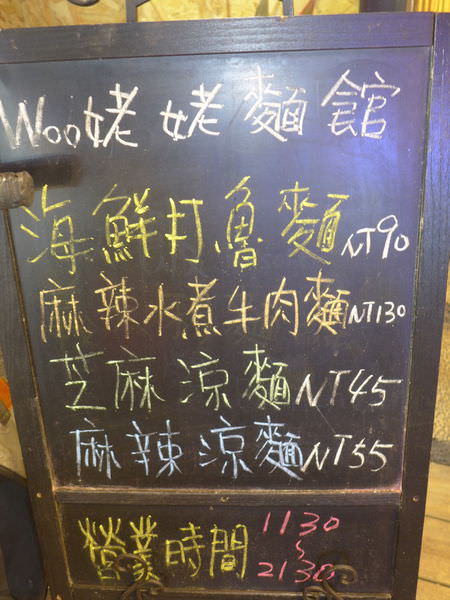 Woo姥姥麵館
海鮮打魯麵NT90
麻辣水煮牛肉麵NT130
芝麻涼麵NT45
麻辣涼麵NT55
營業時間 1130
~
2130